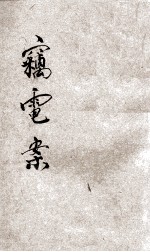 竊電案